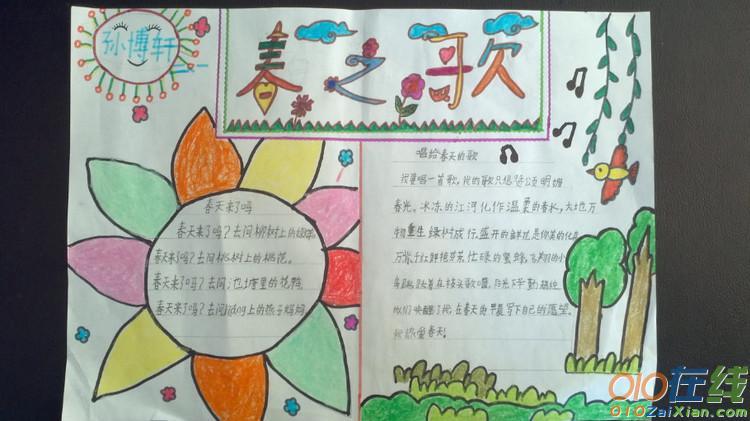 孙博轩
春之歌
春天来了吗
春天来了吗？去问柳树上的
春天来了吗？去问桃树上的桃花。
春天来了吗？去问池塘里的
春天来了吗？去问 上的燕子妈妈。
唱给春天的歌
我要唱一首歌，我的歌只想 颂明媚
春光。冰冻的江河化作温柔的春水，大地万
物重生绿树成行，盛开的鲜花是你美的化身
万紫千红 忙碌的蜜蜂，飞翔的小
鸟 在枝头歌唱，阳光下辛勤
他们唤醒了我，在春天的早晨写下自己的愿望。
我热爱春天！
010在线
010ZaiXian.com